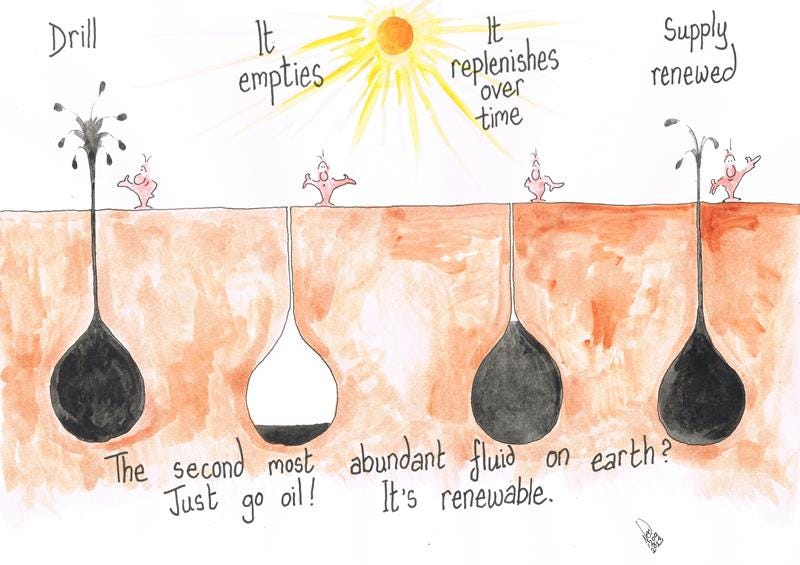 Drill
It
empties
It
replenishes
over
time
Supply
renewed
The second most abundant fluid on earth?
Just go oil! It's renewable.